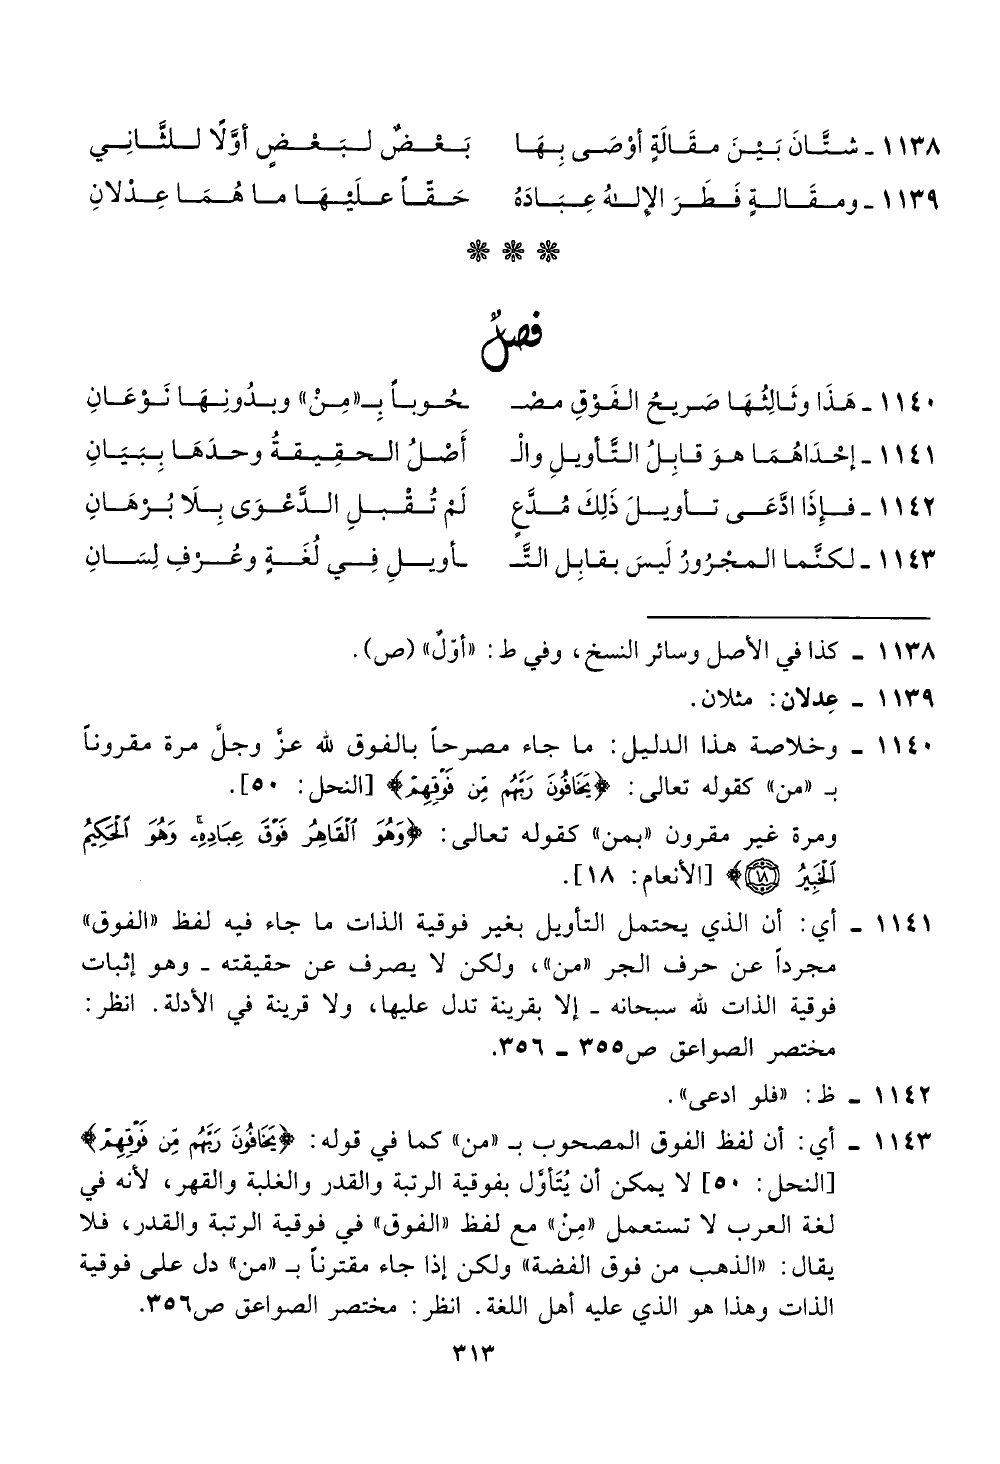 ١١٣٨ ـ شتَّانَ بَيْنَ مقَالَةٍ أوْصَى بِهَا بَعْضٌ لبَعْضٍ أوَّلًا للثَّانِي
١١٣٩ ـ ومقَالةٍ فَطَرَ الإلهُ عِبَادَهُ حَقّاً علَيْهَا ما هُمَا عِدْلانِ
❋ ❋ ❋
فصلٌ
١١٤٠ ـ هَذَا وثَالِثُهَا صَرِيحُ الفَوْقِ مصْـ ـحُوباً بِـ«مِنْ» وبدُونِهَا نَوْعَانِ
١١٤١ ـ إحْدَاهُمَا هوَ قابِلُ التَّأويلِ والْـ أَصْلُ الحقِيقةُ وحدَهَا بِبَيَانِ
١١٤٢ ـ فإِذَا ادَّعَى تأويلَ ذَلِكَ مُدَّعٍ لَمْ تُقْبلِ الدَّعْوَى بِلَا بُرْهَانِ
١١٤٣ ـ لكنَّما المجْرُورُ ليسَ بقابِلِ التَّـ ـأويلِ فِي لُغَةٍ وعُرْفِ لِسَانِ
١١٣٨ ـ كذا في الأصل وسائر النسخ، وفي ط: «أوّلٌ» (ص).
١١٣٩ ـ عِدلان: مثلان.
١١٤٠ ـ وخلاصة هذا الدليل: ما جاء مصرحاً بالفوق لله عزَّ وجلَّ مرة مقروناً
بـ «من» كقوله تعالى: ﴿يَخَافُونَ رَبَّهُم مِّن فَوْقِهِمْ﴾ [النحل: ٥٠].
ومرة غير مقرون «بمن» كقوله تعالى: ﴿وَهُوَ ٱلْقَاهِرُ فَوْقَ عِبَادِهِۦۚ وَهُوَ ٱلْحَكِيمُ
ٱلْخَبِيرُ ١٨﴾ [الأنعام: ١٨].
١١٤١ ـ أي: أن الذي يحتمل التأويل بغير فوقية الذات ما جاء فيه لفظ «الفوق»
مجرداً عن حرف الجر «من»، ولكن لا يصرف عن حقيقته ـ وهو إثبات
فوقية الذات لله سبحانه ـ إلا بقرينة تدل عليها، ولا قرينة في الأدلة. انظر:
مختصر الصواعق ص٣٥٥ ـ ٣٥٦.
١١٤٢ ـ ظ: «فلو ادعى».
١١٤٣ ـ أي: أن لفظ الفوق المصحوب بـ «من» كما في قوله: ﴿يَخَافُونَ رَبَّهُم مِّن فَوْقِهِمْ﴾
[النحل: ٥٠] لا يمكن أن يُتَأوَّل بفوقية الرتبة والقدر والغلبة والقهر، لأنه في
لغة العرب لا تستعمل «مِنْ» مع لفظ «الفوق» في فوقية الرتبة والقدر، فلا
يقال: «الذهب من فوق الفضة» ولكن إذا جاء مقترناً بـ «من» دل على فوقية
الذات وهذا هو الذي عليه أهل اللغة. انظر: مختصر الصواعق ص٣٥٦.
٣١٣